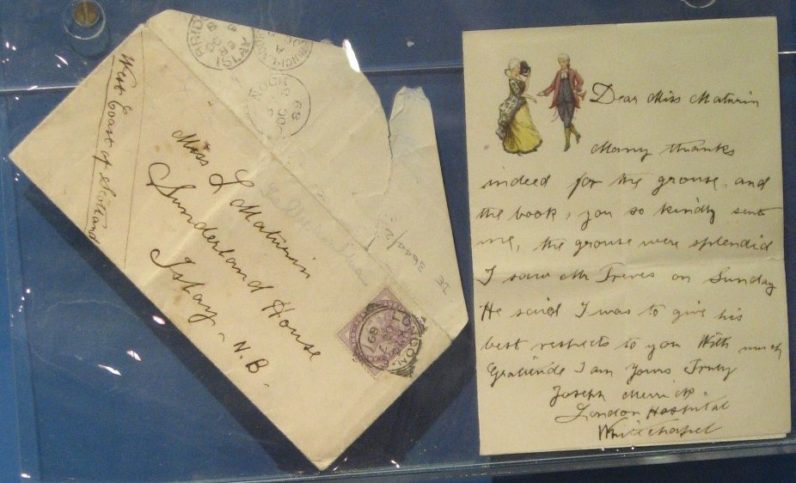 West Coast of Scotland
Miss L Maturin
Sunderland House
Islay - N.B -
NOON
OC
89
LONDON
89
Dear Miss Maturin
Many thanks
indeed for the grouse, and
the book, you so kindly sent
me, the grouse were splendid
I saw Mr Treves on Sunday
He said I was to give his
best respects to you With much
Gratitude I am Yours Truly
Joseph Merrick
London Hospital
Whitechapel